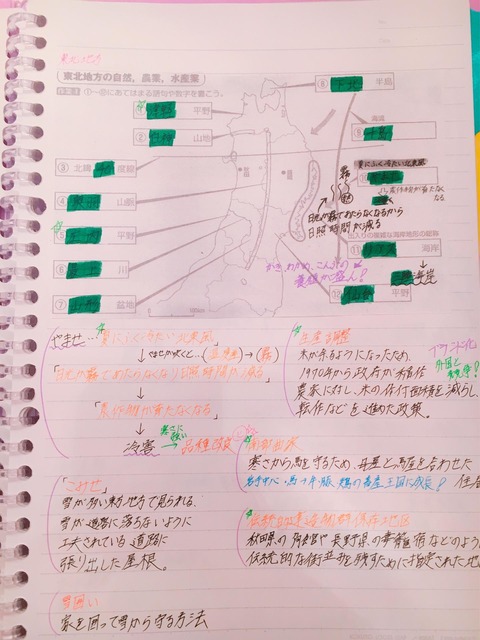 東北地方の自然，農業，水産業
作業1 ①一⑫にあてはまる語句や数字を書こう。
⑧ 下北 半島
平野
② 山地
海流
③ 北緯 度線
夏にふく冷たい北東風
④ 山脈
霧
農作物が育たなくなる
⑤ 平野
日光が霧であたらなくなるから
日照時間が減る
出入りの複雑な海岸地形の総称
⑥ 川
⑪ 海岸
かき、わかめ、こんぶの
養殖が盛ん！
⑦ 盆地
⑫ 平野
やませ… 夏にふく冷たい北東風
↓ やませが吹くと…
→ (霧)
「日光が霧であたらなくなり日照時間が減る」
↓
「農作物が育たなくなる」
↓ 寒さに強い
冷害 → 品種改良
生産調整
米が余るようになったため、
1970年から政府が
農家に対し、米の作付面積を減らし、
転作などを進めた政策。
ブランド化
外国と競争！
南部曲家
寒さから馬を守るため、母屋と馬屋を合わせた
「こみせ」
雪が多い東北地方で見られる、
雪が道路に落ちないように
工夫されている道路に
張り出した屋根。
伝統的建造物群保存地区
秋田県の角館や長野県の妻籠宿などのよう
伝統的な街並みを残すために指定された地
雪囲い
家を囲って雪から守る方法